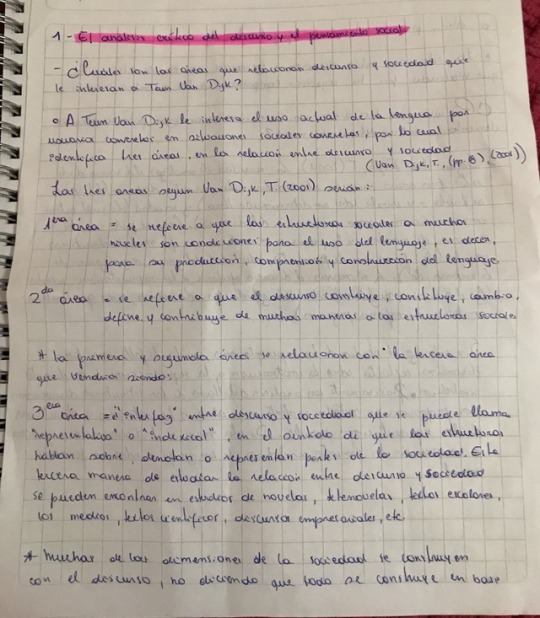 1 - El análisis crítico del discurso y el pensamiento social
- ¿Cuáles son las áreas que relacionan discurso y sociedad que
le interesan a Teun Van Dijk?
o A Teun Van Dijk le interesa el uso actual de la lengua por
usuarios concretos en situaciones sociales concretas, por lo cual
identifica tres áreas, en la relación entre discurso y sociedad
(Van Dijk, T, (pp. 8), (2001))
Las tres areas según Van Dijk, T. (2001) serían:
1era área = se refiere a que las estructuras sociales a muchos
niveles son condiciones para el uso del lenguaje, es decir,
para su producción, comprensión y construcción del lenguaje
2da área = se refiere a que el discurso construye, constituye, cambia,
define y contribuye de muchas maneras a las estructuras sociales
* la primera y segunda áreas se relacionan con la tercera área
que vendría siendo:
3era área = "interfaz" entre discurso y sociedad que se puede llama
"representativa" o "indexical", en el sentido de que las estructuras
hablan sobre, denotan o representan partes de la sociedad. Esta
tercera manera de estudiar la relación entre discurso y sociedad
se pueden encontrar en estudios de novelas, telenovelas, textos escolares,
los medios, textos científicos, discursos empresariales, etc
* Muchas de las dimensiones de la sociedad se construyen
con el discurso, no diciendo que todo se construye en base